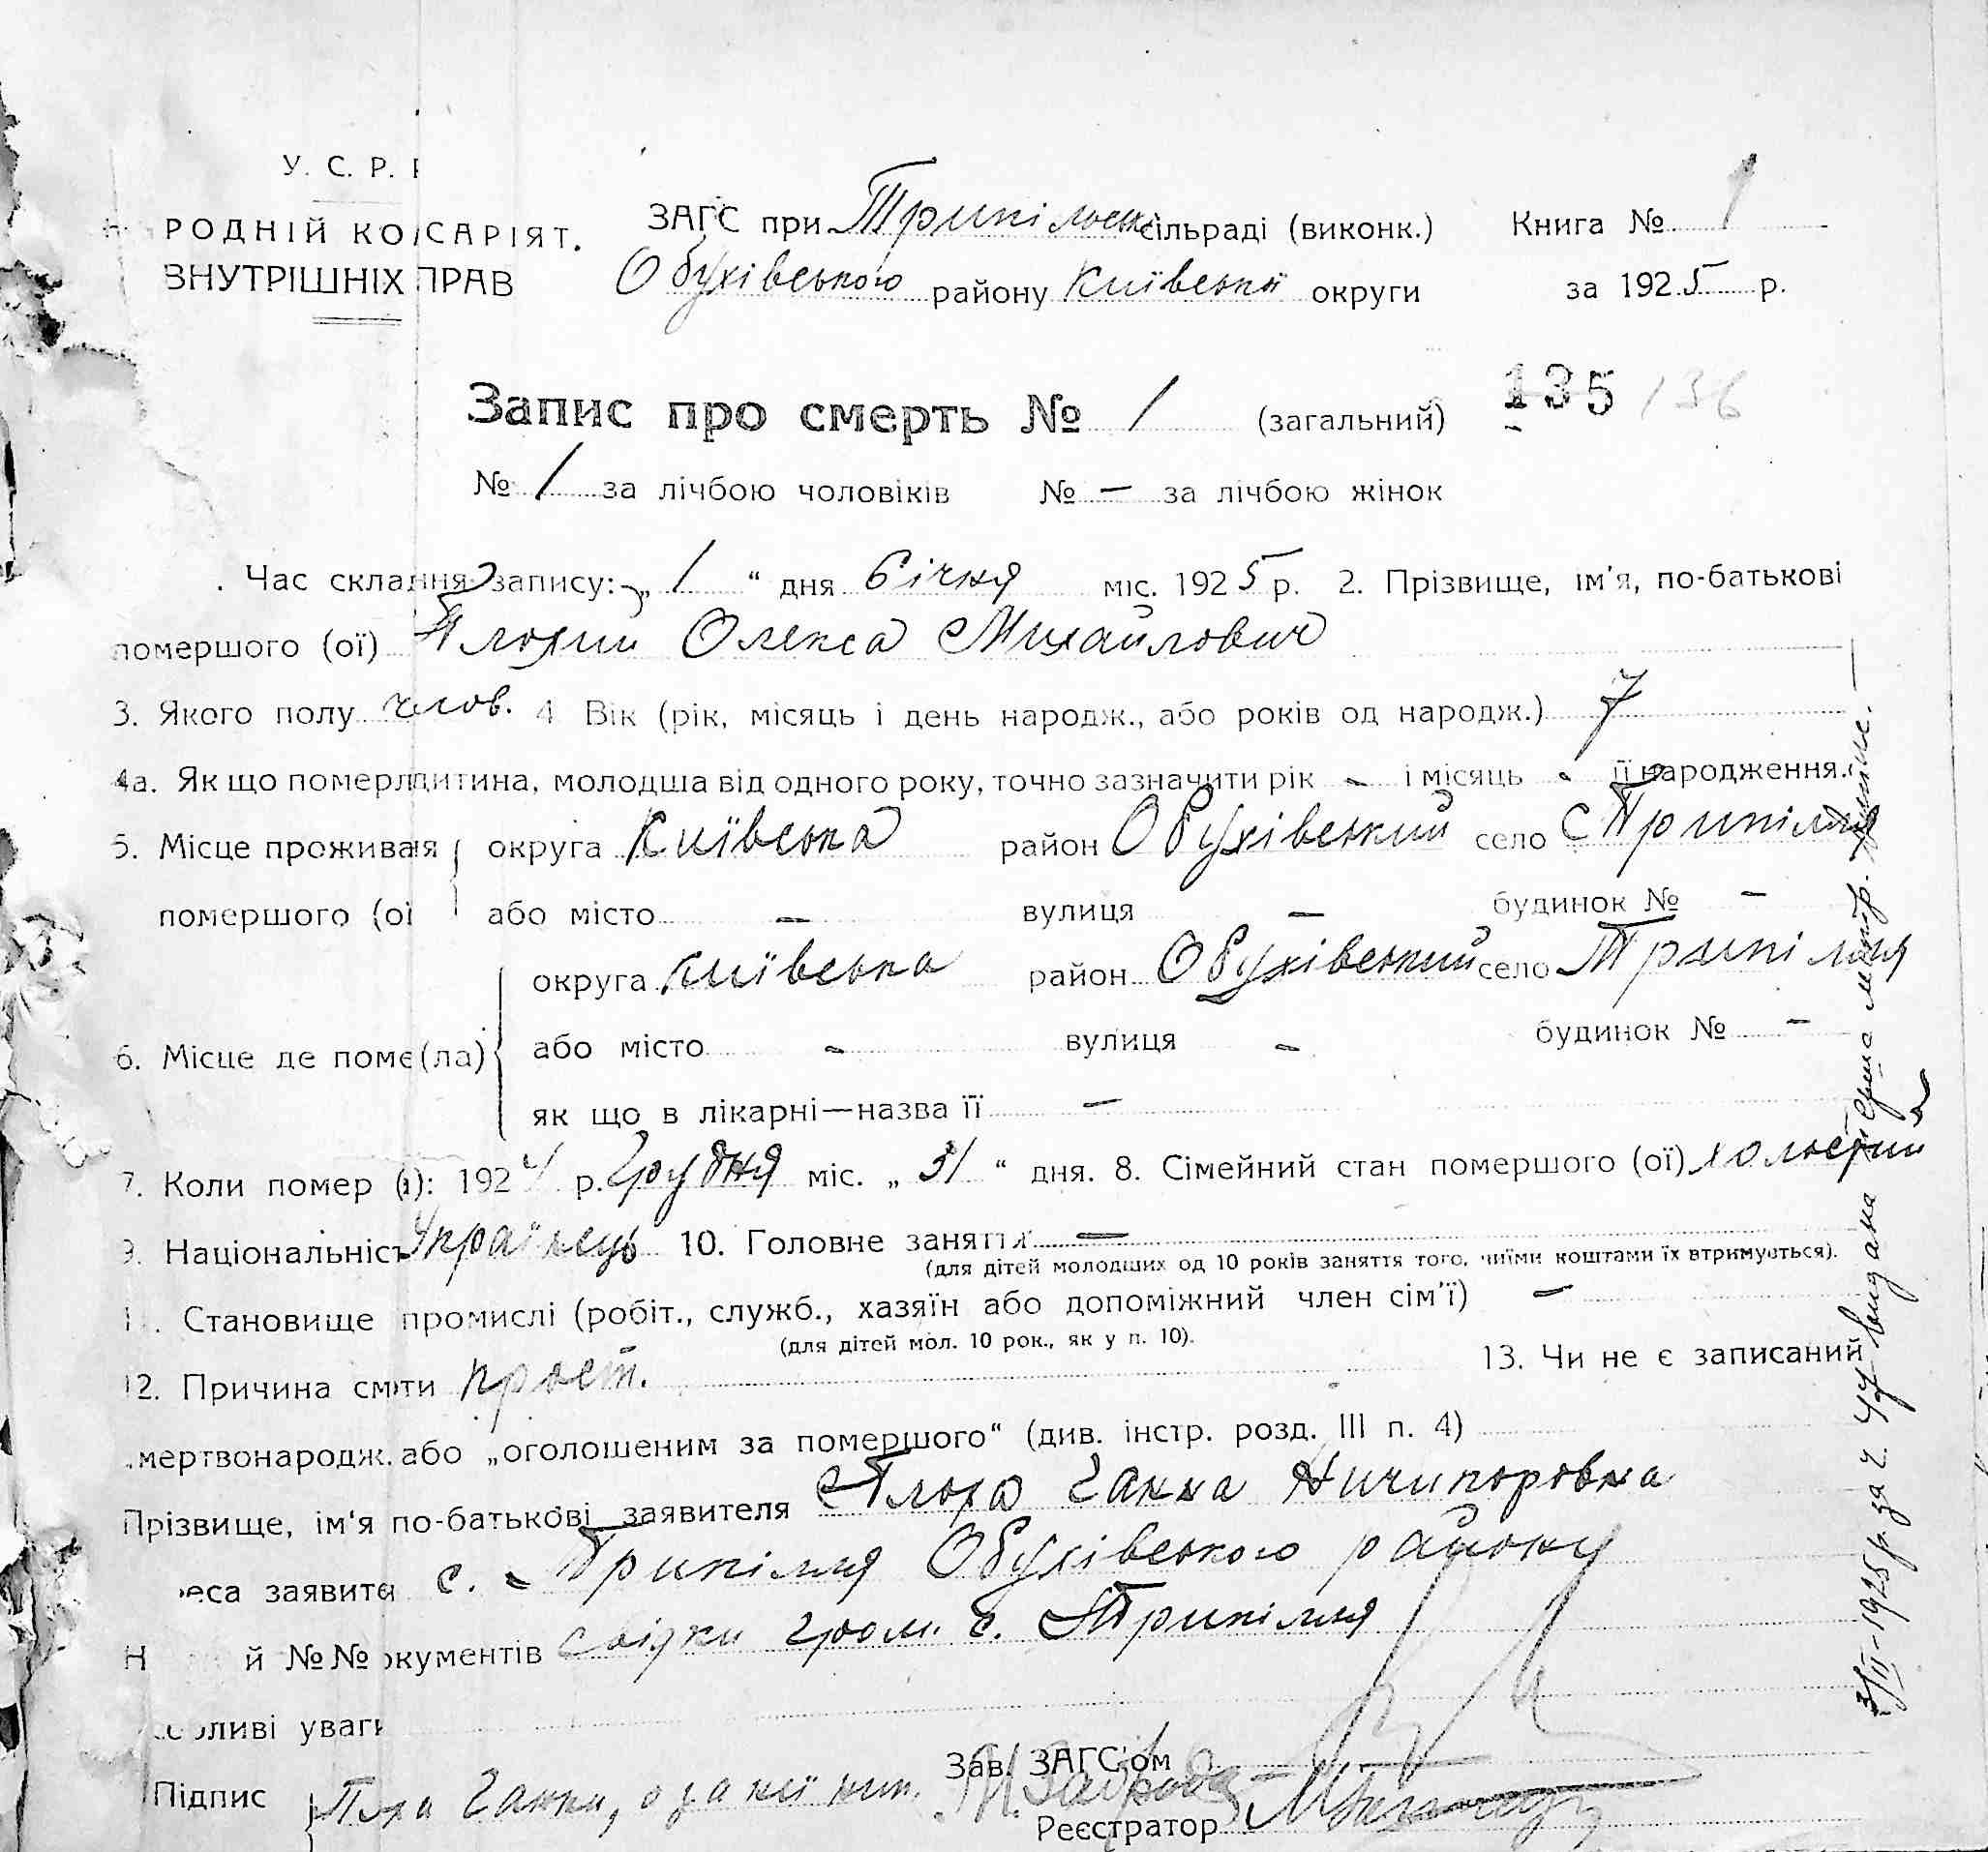 У. С. Р. Р
РОДНІЙ КО САРІЯТ.
ВНУТРІШНІХ ПРАВ
ЗАГС при Трипільськ сільраді (виконк.) Книга № 1
Обухівського району Київської округи за 1925 р.
Запис про смерть № 1 (загальний) 135 136
№ 1 за лічбою чоловіків № — за лічбою жінок
Час склання запису: „ 1 “ дня Січня міс. 1925 р. 2. Прізвище, ім'я, по-батькові
помершого (ої) Плохий Олекса Михайлович
3. Якого полу чолов. 4 Вік (рік, місяць і день народж., або років од народж.) 7
4а. Як що померл дитина, молодша від одного року, точно зазначити рік - і місяць - її народження.
5. Місце проживая округа Київська район Обухівський село Трипілля
помершого (ої або місто — вулиця — будинок № —
округа Київська район Обухівський село Трипілля
6. Місце де поме(ла) або місто - вулиця - будинок № -
як що в лікарні—назва її —
7. Коли помер ( ): 1924 р. Грудня міс. „ 31 “ дня. 8. Сімейний стан помершого (ої) холостий
9. Національніст Українець 10. Головне заняття —
(для дітей молодших од 10 років заняття того, чиїми коштами їх втримується).
1 . Становище промислі (робіт., служб., хазяїн або допоміжний член сім'ї) —
(для дітей мол. 10 рок., як у п. 10).
12. Причина смти прост. 13. Чи не є записаний
мертвонародж. або „оголошеним за помершого“ (див. інстр. розд. III п. 4)
Прізвище, ім'я по-батькові заявителя Плоха Ганна Ничипоровна
еса заявите с. Трипілля Обухівського району
Н й №№ окументів свідки гром. с. Трипілля
ливі уваги
Зав. ЗАГС'ом
Підпис Плха Ганна, а за неї
Реєстратор
3/II-1925 р. за ч. видана перша метр.